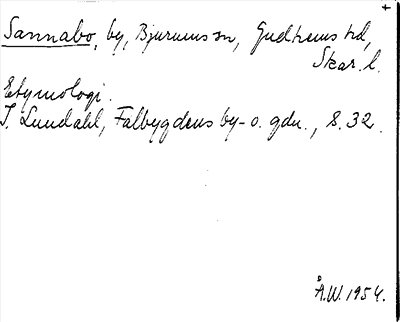 Sannabo, by, Bjurums sn, Gudhems hd,
Skar. l.
Etymologi.
I. Lundahl, Falbygdens by- o. gdn., s. 32.
Å.W. 1954.